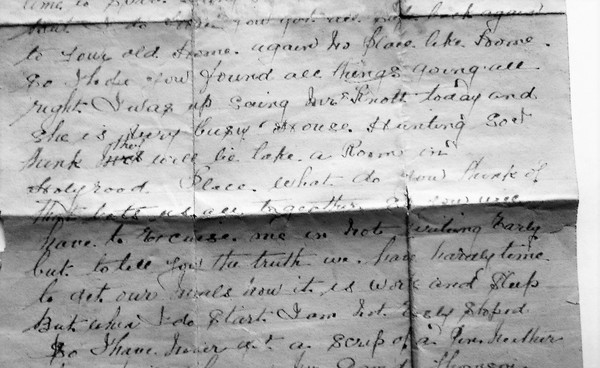 time to
but I do you got back again
to your old Home. again No Place like Home.
So I hope you found all things going all
right. I was up Seing Mrs Knott today and
She is very busy House Hunting So I
think they will be take a Room in
Holyrood Place. What do you think of
that lets us all together. you
have to Excuse me in Not writing Early
but to tell you the truth we have hardly time
to get our meals Now it is work and Sleep
But when I do Start I am Not Easy Stoped
So I have Never got a Scrap of a Pen Neither